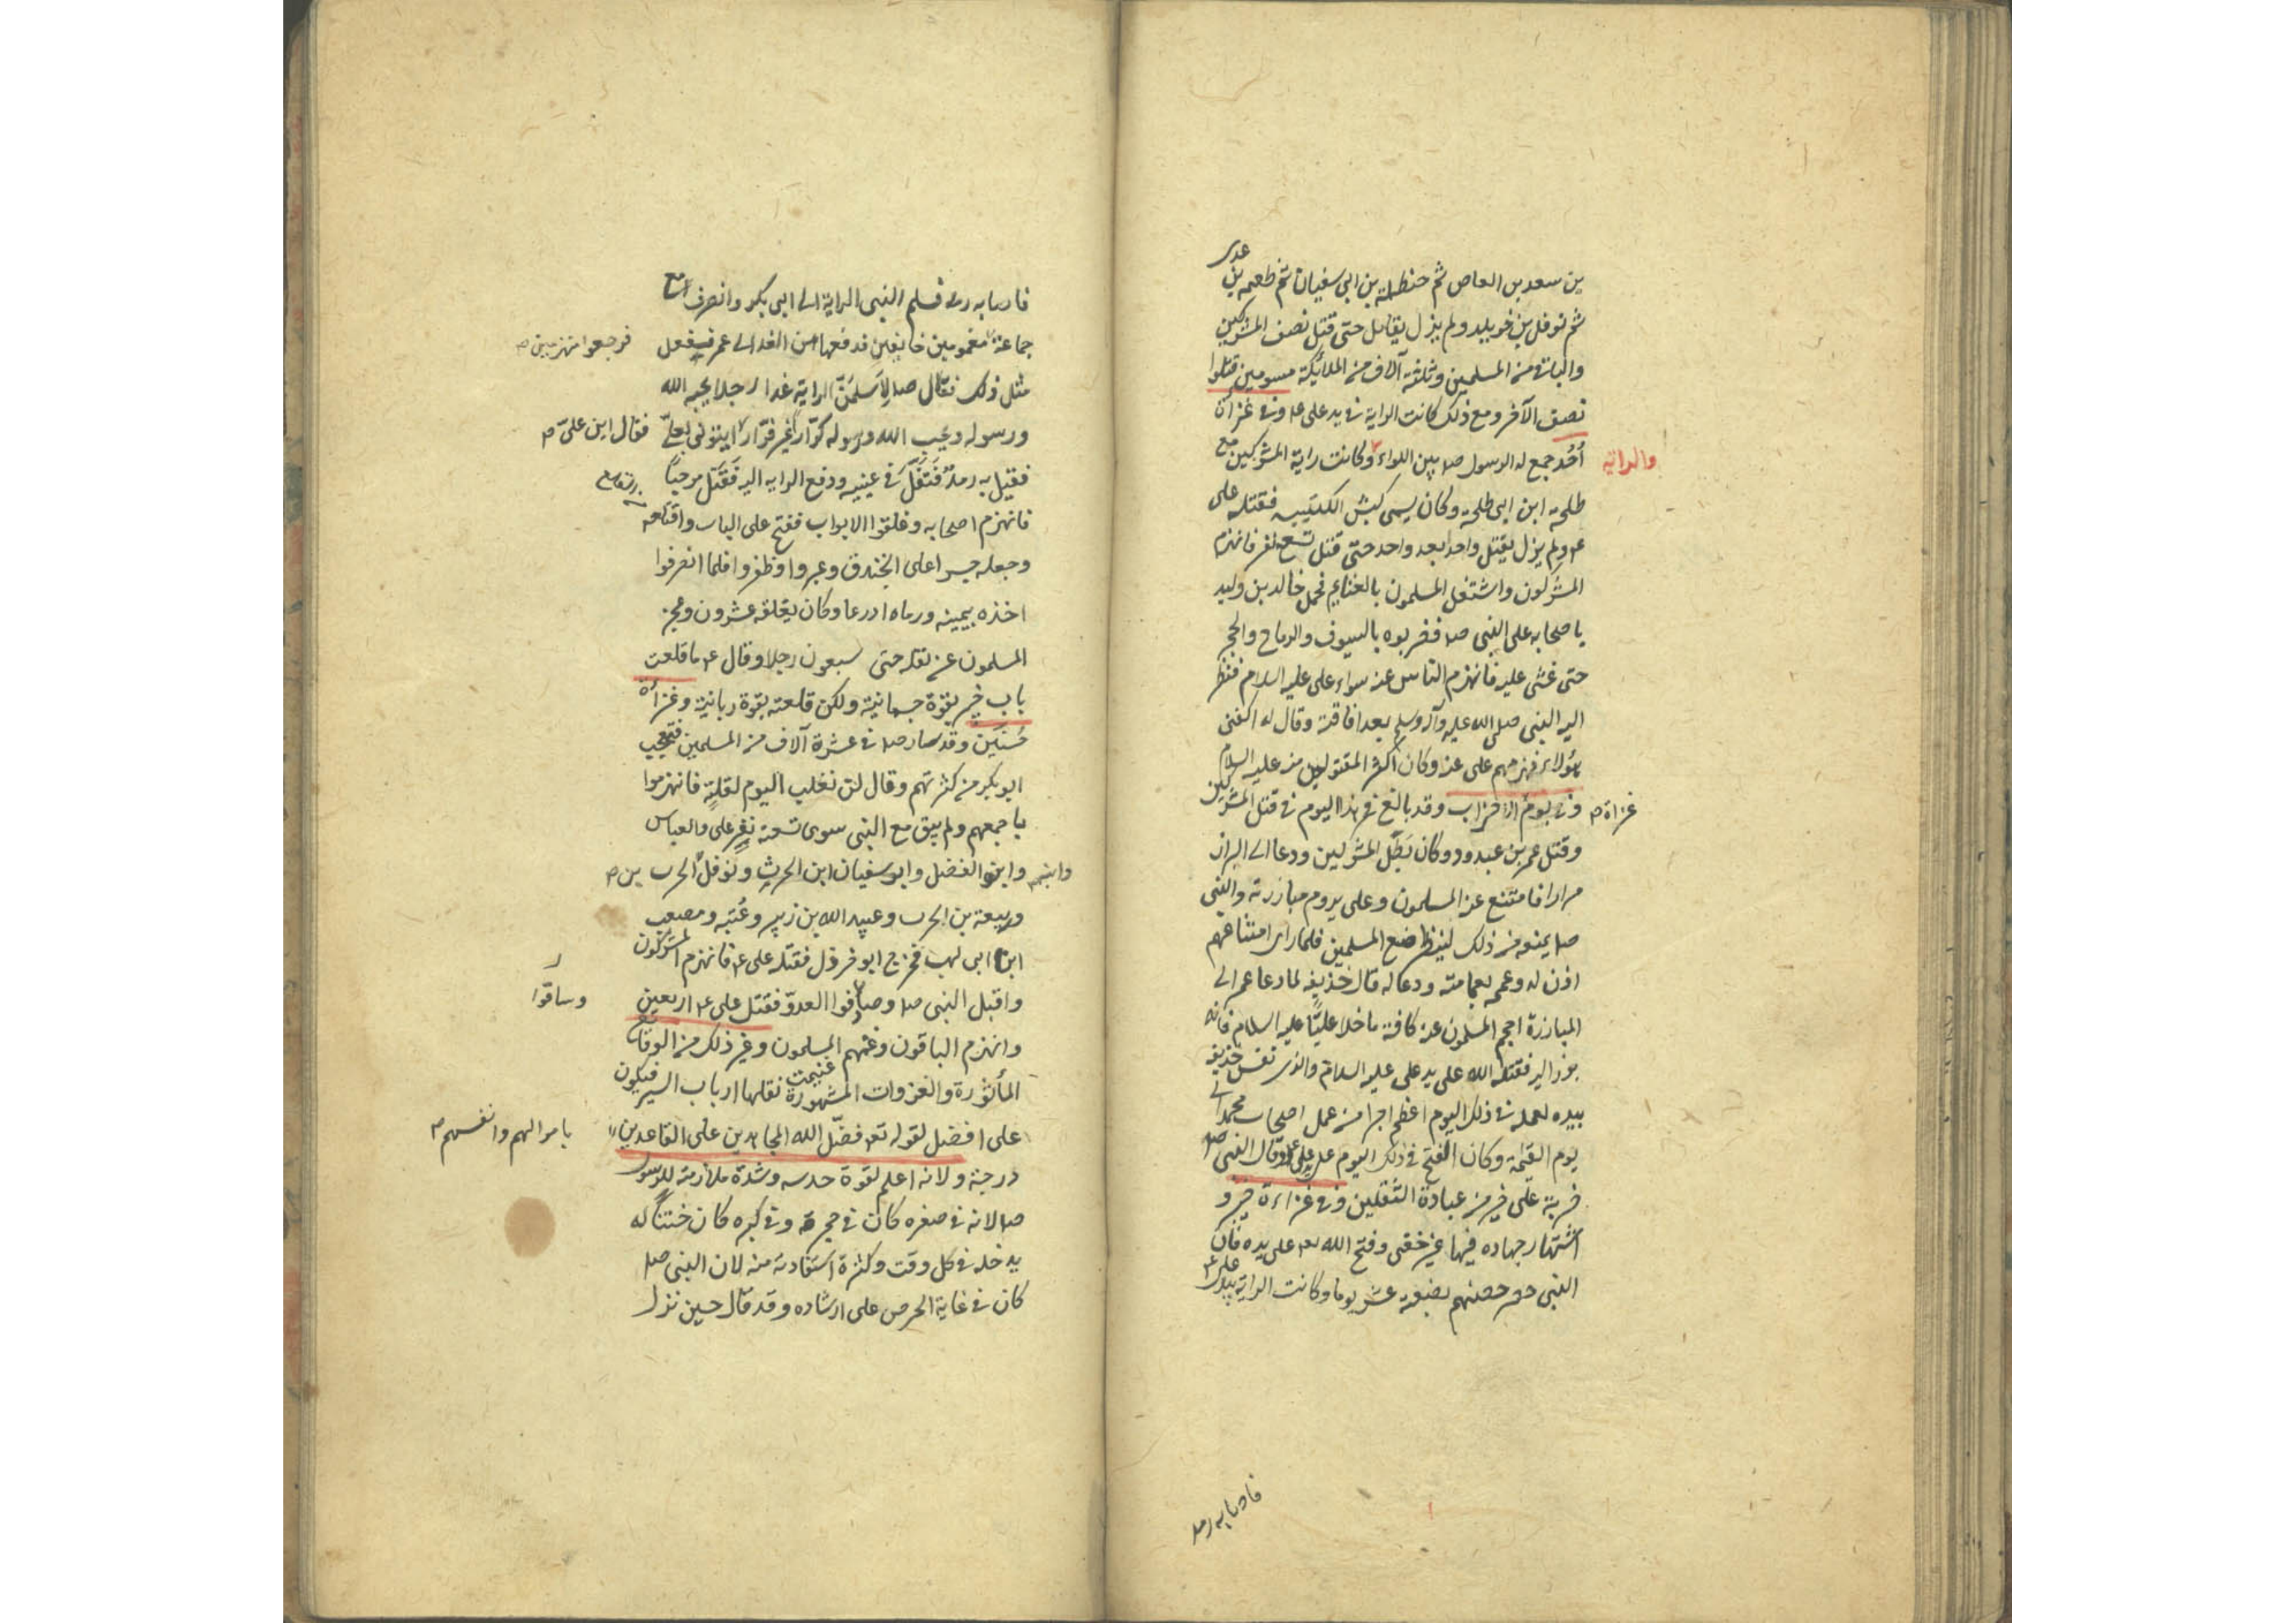 عدى
بن سعد بن العاص ثم حنظلة بن ابى سفيان ثم طعيمه بن
ثم نوفل بن خويلد ولم يزل يقاتل حتى قتل نصف المشركين
والباقى من المسلمين وثلثة آلاف من الملائكة مسومين قتلوا
نصف الآخر ومع ذلك كانت الراية فى يد على ع وفى غزاة
أُحُد جمع له الرسول ص بين اللواء وكانت راية المشركين مع
والراية
طلحة ابن ابى طلحة وكان يسمى كبش الكتيبه فقتله على
ع ولم يزل يقتل واحدا بعد واحد حتى قتل تسعة نفر فانهزم
المشركون واشتغل المسلمون بالغنايم فحمل خالد بن وليد
باصحابه على النبى ص فضربوه بالسيوف والرماح والحجر
حتى غشى عليه فانهزم الناس عنه سواء على عليه السلام فنظر
اليه النبى صلى الله عليه وآله وسلم بعد افاقته وقال له اكفنى
هؤلاء فهزمهم على عنه وكان اكثر المقتولين منه عليه السلام
وفى يوم الاحزاب وقد بالغ فى هذا اليوم فى قتل المشركين
غزاة م
وقتل عمر بن عبدود وكان بَطَل المشركين ودعا الى البراز
مرارا فامتنع عنه المسلمون وعلى يروم مبارزته والنبى
ص يمنعه من ذلك لينظر صنع المسلمين فلما راى امتناعهم
اذن له وعممه بعمامته ودعا له قال حذيفه لما دعا عمر الى
المبارزة احجم المسلمون عنه كافة ما خلا عليّاً عليه السلام فانه
برز اليه فقتله الله على يد على عليه السلام والذى نفس حذيفه
بيده لعمله فى ذلك اليوم اعظم اجرا من عمل اصحاب محمد الى
يوم القيمة وكان الفتح فى ذلك اليوم على يد على ع وقال النبى ص
ضربة على خير من عبادة الثقلين وفى غزاءة خيبر و
اشتهار جهاده فيها غير خفى وفتح الله تعه على يده فان
النبى ص حصر حصنهم بضعة عشر يوما وكانت الراية بيد على ع
فاصابه رمد
فاصابه رمد فسلم النبى الراية الى ابى بكر وانصرف مع
جماعة مغمومين خايفين فدفعها من الغد الى عمر ففعل
فرجعوا منهزمين م
مثل ذلك فقال ص لاسلمَنَّ الراية غدا رجلا يحبه الله
ورسوله ويحب الله ورسوله كرّارا غير فرّار ايتونى بعلىّ
فقال اين على م
فقيل به رمدٌ فَتَفَلَ فى عينيه ودفع الراية اليه فَقَتَل مرحباً
فانهزم اصحابه وغلقوا الابواب ففتح على الباب واقتلعه
وجعله جسرا على الخندق وعبروا وظفروا فلما انصرفوا
اخذه بيمينه ورماه اذرعا وكان يغلقه عشرون وعجز
المسلمون عن نقله حتى سبعون رجلا وقال ع ما قلعت
باب خيبر بقوة جسمانية ولكن قلعته بقوة ربانية وغزاة
حُنَين وقد سار ص فى عشرة آلاف من المسلمين فتعجب
ابو بكر من كثرتهم وقال لن نغلب اليوم لقلة فانهزموا
باجمعهم ولم يبق مع النبى سوى تسعة نفرٍ على والعباس
وابنه
وابن الفضل وابو سفيان ابن الحرث ونوفل بن الحرث
وربيعة بن الحرث وعبيد الله بن زبير وعُتبه ومصعب
ابن ابى لهب فخرج ابو خرول فقتله على ع فانهزم المشركون
واقبل النبى ص وصافوا العدوّ فقتل على ع اربعين
وساقوا
وانهزم الباقون وغنمهم المسلمون وغير ذلك من الوقايع
المأثورة والغزوات المشهورة نقلها ارباب السير فيكون
على افضل لقوله تعه فضّل الله المجاهدين على القاعدين
باموالهم وانفسهم م
درجة ولانه اعلم لقوة حدسه وشدة ملازمته للرسول
ص لانه فى صغره كان فى حجره وفى كبره كان ختناً له
يدخله فى كل وقت وكثرة استفادته منه لان النبى ص
كان فى غاية الحرص على ارشاده وقد قال حين نزل